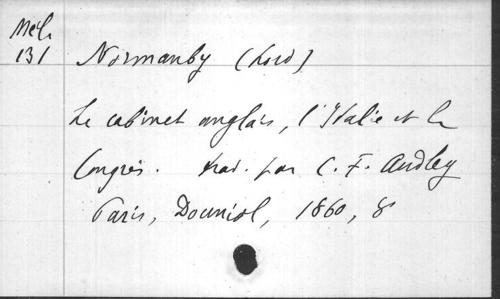 Mél.
131 Normanby (Lord)
Le cabinet anglais, l'Italie et le
Congrès. trad. par C. F. Audley
Paris, Douniol, 1860, 8